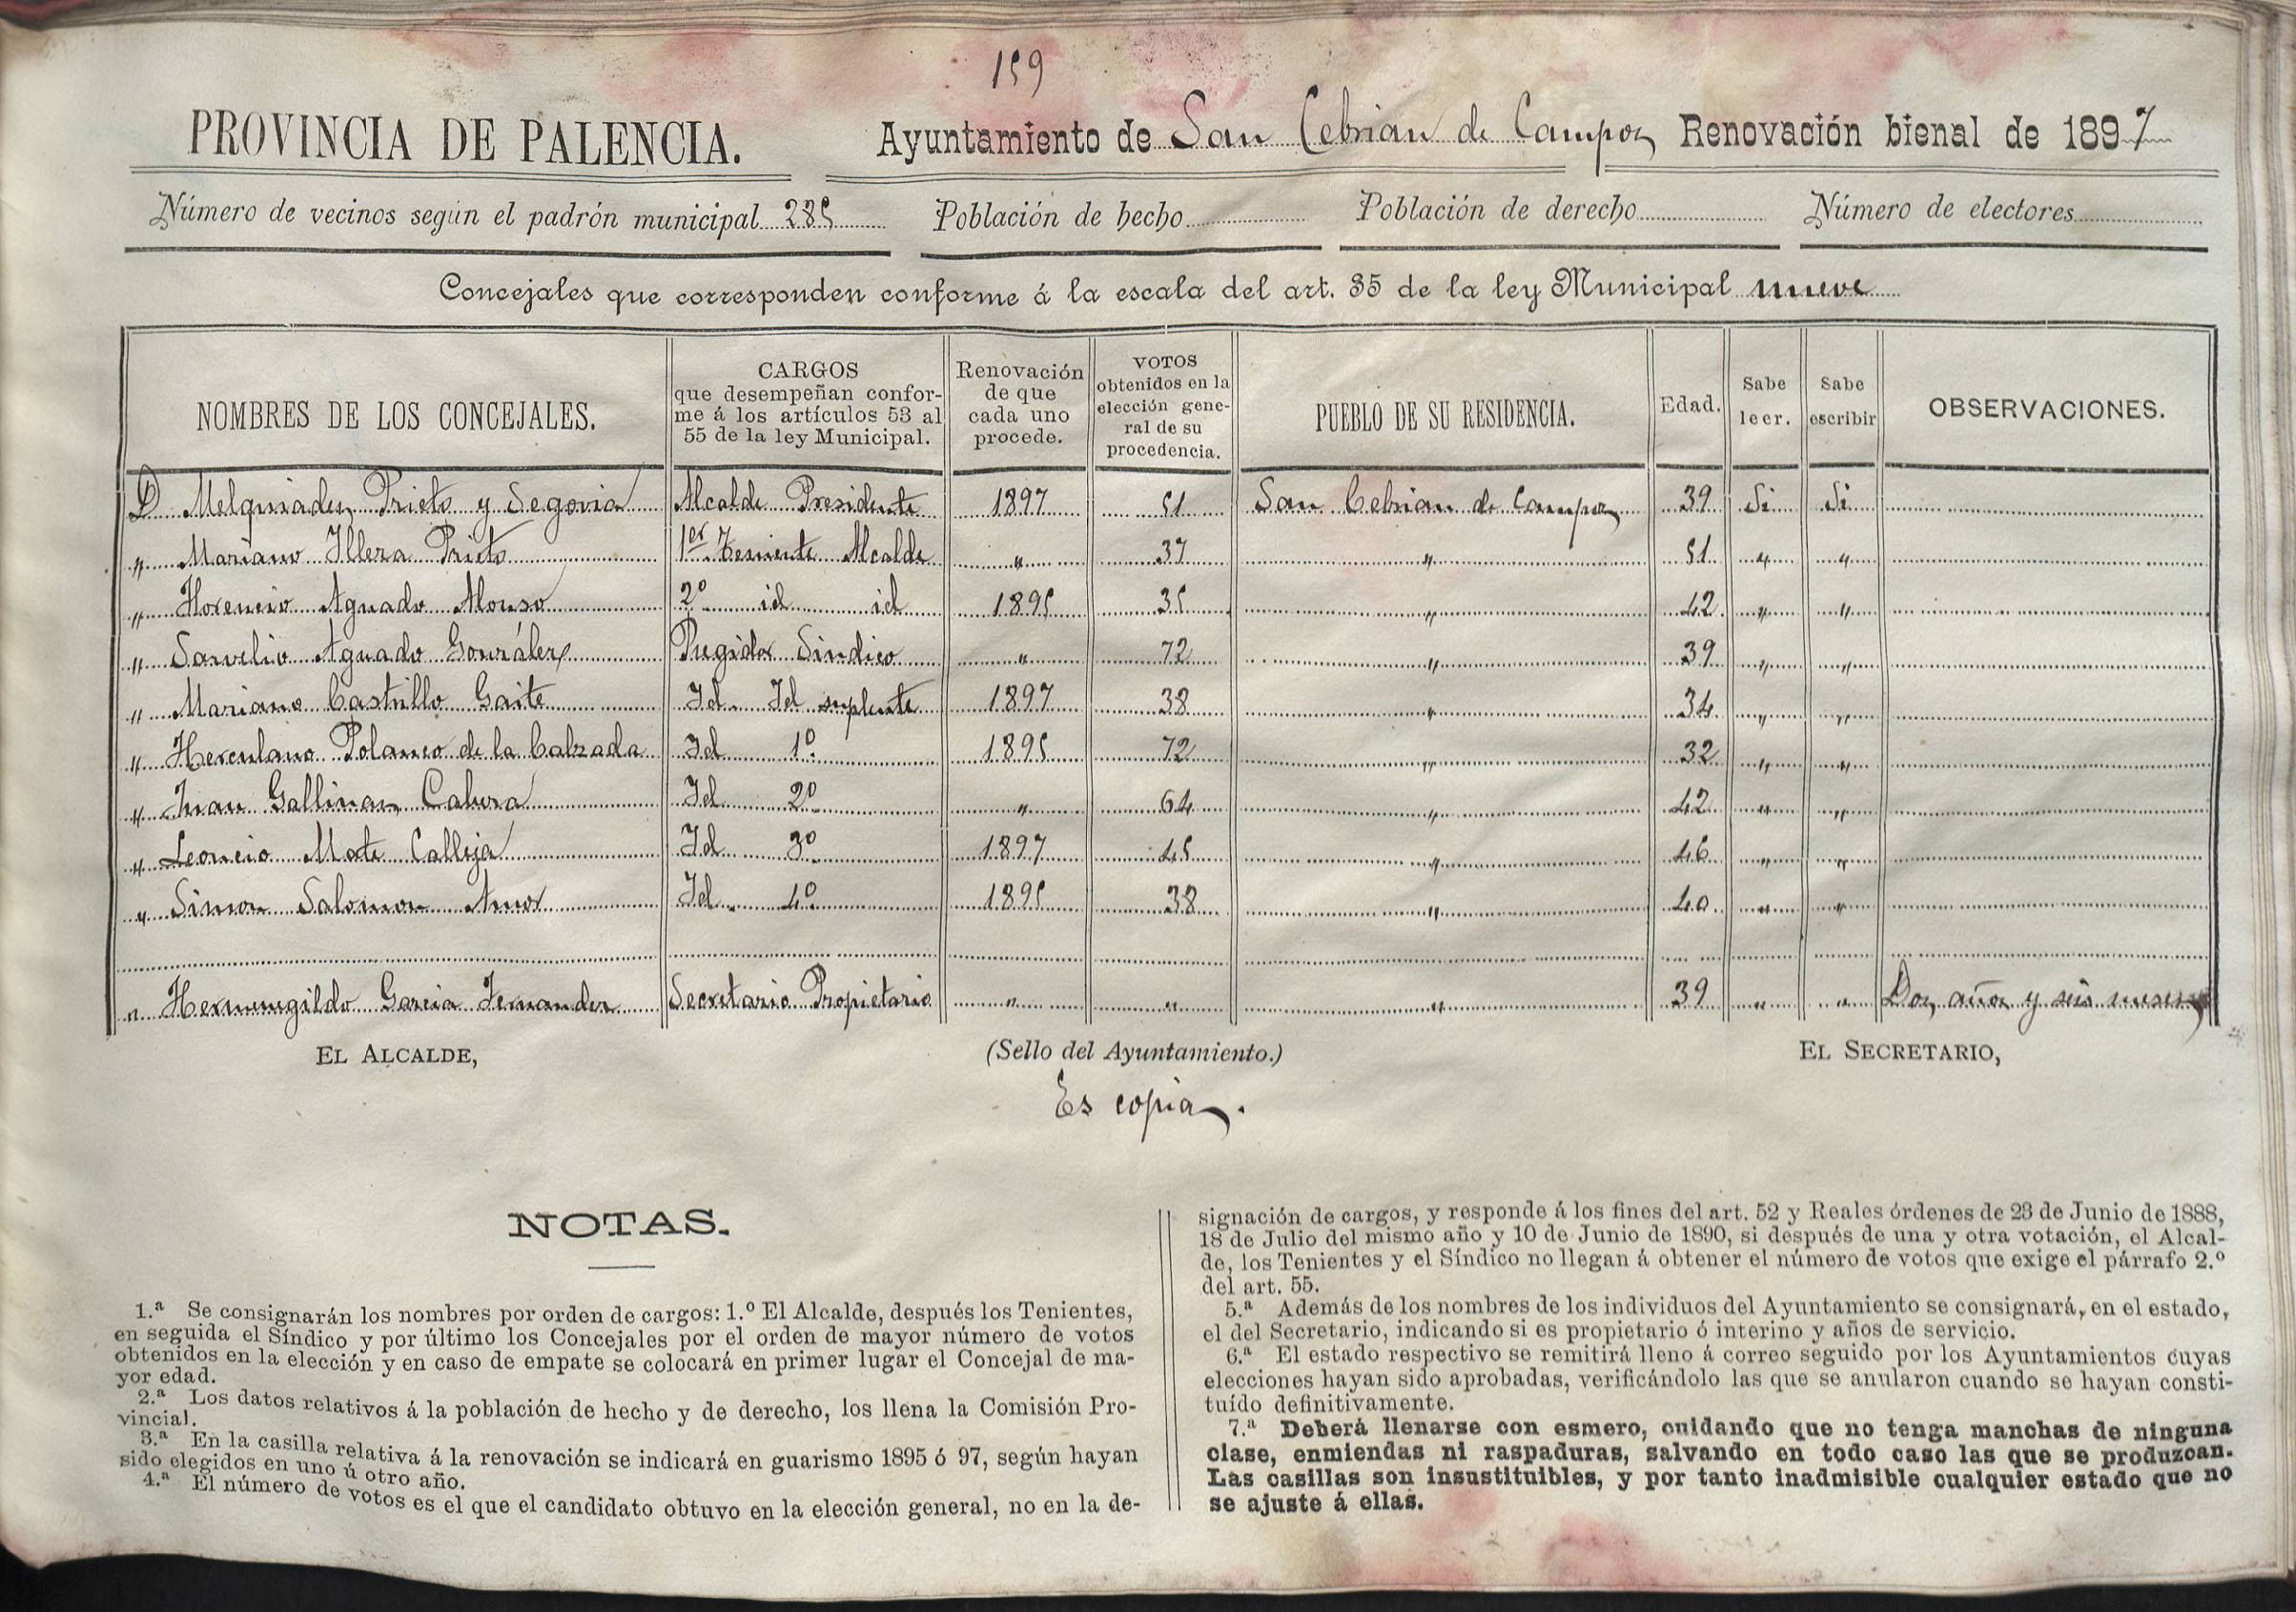 159
PROVINCIA DE PALENCIA. Ayuntamiento de San Cebrian de Campos Renovación bienal de 1897
Número de vecinos según el padrón municipal 285 Población de hecho Población de derecho Número de electores
Concejales que corresponden conforme á la escala del art. 35 de la ley Municipal nueve
NOMBRES DE LOS CONCEJALES.
CARGOS
que desempeñan confor-
me á los artículos 53 al
55 de la ley Municipal.
Renovación
de que
cada uno
procede.
VOTOS
obtenidos en la
elección gene-
ral de su
procedencia.
PUEBLO DE SU RESIDENCIA.
Edad.
Sabe
leer.
Sabe
escribir
OBSERVACIONES.
D Melquiades Prieto y Segovia Alcalde Presidente 1897 51 San Cebrian de Campos 39 Si Si
" Mariano Illera Prieto 1er Teniente Alcalde " 37 " 51 " "
" Florencio Aguado Alonso 2º id id 1895 35 " 42 " "
" Sarvelio Aguado González Regidor Sindico " 72 " 39 " "
" Mariano Castrillo Gaite Id. Id suplente 1897 38 " 34 " "
" Herculano Polanco de la Calzada Id 1º 1895 72 " 32 " "
" Juan Gallinas Calvera Id 2º " 64 " 42 " "
" Leoncio Mate Calleja Id 3º 1897 45 " 46 " "
" Simon Salomon Amor Id. 4º 1895 38 " 40 " "
" Hermenegildo Garcia Fernandez Secretario Propietario " " " 39 " " Dos años y seis meses
EL ALCALDE, (Sello del Ayuntamiento.) EL SECRETARIO,
Es copia.
NOTAS.
1.ª Se consignarán los nombres por orden de cargos: 1.º El Alcalde, después los Tenientes,
en seguida el Síndico y por último los Concejales por el orden de mayor número de votos
obtenidos en la elección y en caso de empate se colocará en primer lugar el Concejal de ma-
yor edad.
2.ª Los datos relativos á la población de hecho y de derecho, los llena la Comisión Pro-
vincial.
3.ª En la casilla relativa á la renovación se indicará en guarismo 1895 ó 97, según hayan
sido elegidos en uno ú otro año.
4.ª El número de votos es el que el candidato obtuvo en la elección general, no en la de-
signación de cargos, y responde á los fines del art. 52 y Reales órdenes de 23 de Junio de 1888,
18 de Julio del mismo año y 10 de Junio de 1890, si después de una y otra votación, el Alcal-
de, los Tenientes y el Síndico no llegan á obtener el número de votos que exige el párrafo 2.º
del art. 55.
5.ª Además de los nombres de los individuos del Ayuntamiento se consignará, en el estado,
el del Secretario, indicando si es propietario ó interino y años de servicio.
6.ª El estado respectivo se remitirá lleno á correo seguido por los Ayuntamientos cuyas
elecciones hayan sido aprobadas, verificándolo las que se anularon cuando se hayan consti-
tuído definitivamente.
7.ª Deberá llenarse con esmero, cuidando que no tenga manchas de ninguna
clase, enmiendas ni raspaduras, salvando en todo caso las que se produzcan.
Las casillas son insustituibles, y por tanto inadmisible cualquier estado que no
se ajuste á ellas.